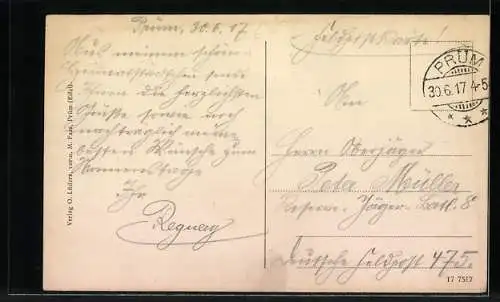 Prüm, 30.6.17
Aus meinem schön.
Heimatstädtchen sende
Ihnen die herzlichsten
Grüsse sowie auch
nachträglich meine
besten Wünsche zum
Namenstage
Ihr
Feldpostkarte!
PRÜM
30.6.17 4-5
* * *
An
Herrn Oberjäger
Peter Müller
Reserve-Jäger-Batl. 8
Deutsche Feldpost 475.
Verlag O. Lüders, vorm. M. Pape, Prüm (Eifel).
17 7517